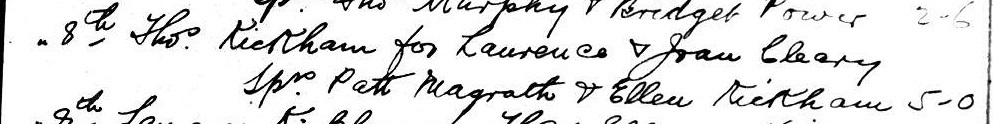 Sps. Tho Murphy & Bridget Power 2-6
" 8th Thos. Kickham for Laurence & Joan Cleary
Sprs Patt Magrath & Ellen Kickham 5-0
8th